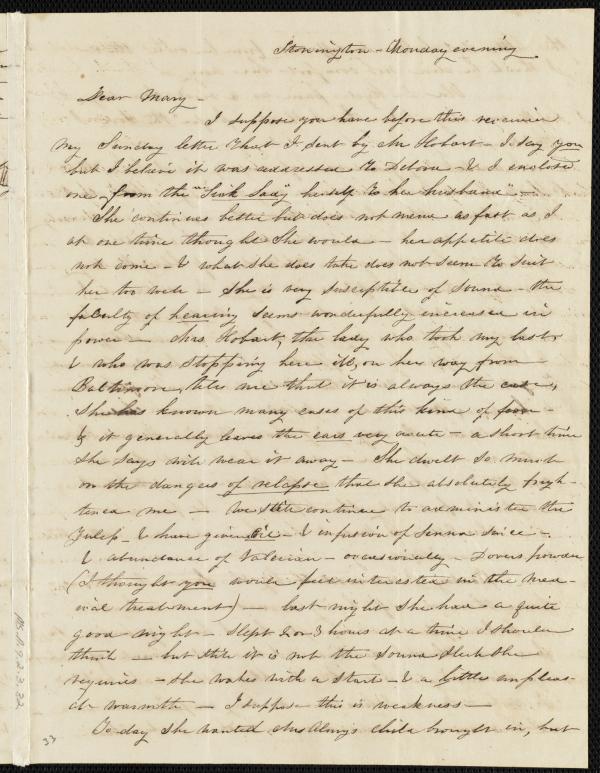 Stonington - Monday evening.
Dear Mary -
I suppose you have before this received
my Sunday letter that I sent by Mr Hobart - I say you
but I believe it was addressed to Debora - & I enclose
one, from the "Sick Lady herself to her husband" -
She continues better but does not mend as fast as I
at one time thought she would - her appetite does
not come - & what she does take does not seem to suit
her too well - She is very susceptible of sound - the
faculty of hearing seems wonderfully increased in
power - Mrs. Hobart, the lady who took my last
& who was stopping here ill, on her way from
Baltimore, tells me that it is always the case,
She has known many cases of this kind of fever -
& it generally leaves the ears very acute - a short time
she says will wear it away - She dwelt so much
on the dangers of relapse that she absolutely frigh-
tened me - We still continue to administer the
Julep - I have given Oil - & infusion of Senna twice -
& abundance of Valerian - occasionally - Dovers powder
(I thought you would feel interested in the med-
ical treatment) - last night she had a quite
good night - slept 2 or 3 hours at a time I should
think - but still it is not the sound sleep she
requires - she wakes with a start - & a little unpleas-
at warmth - I suppose this is weakness -
To day she wanted Mrs child brought in, but
Ms.A.9.2.3.32
33